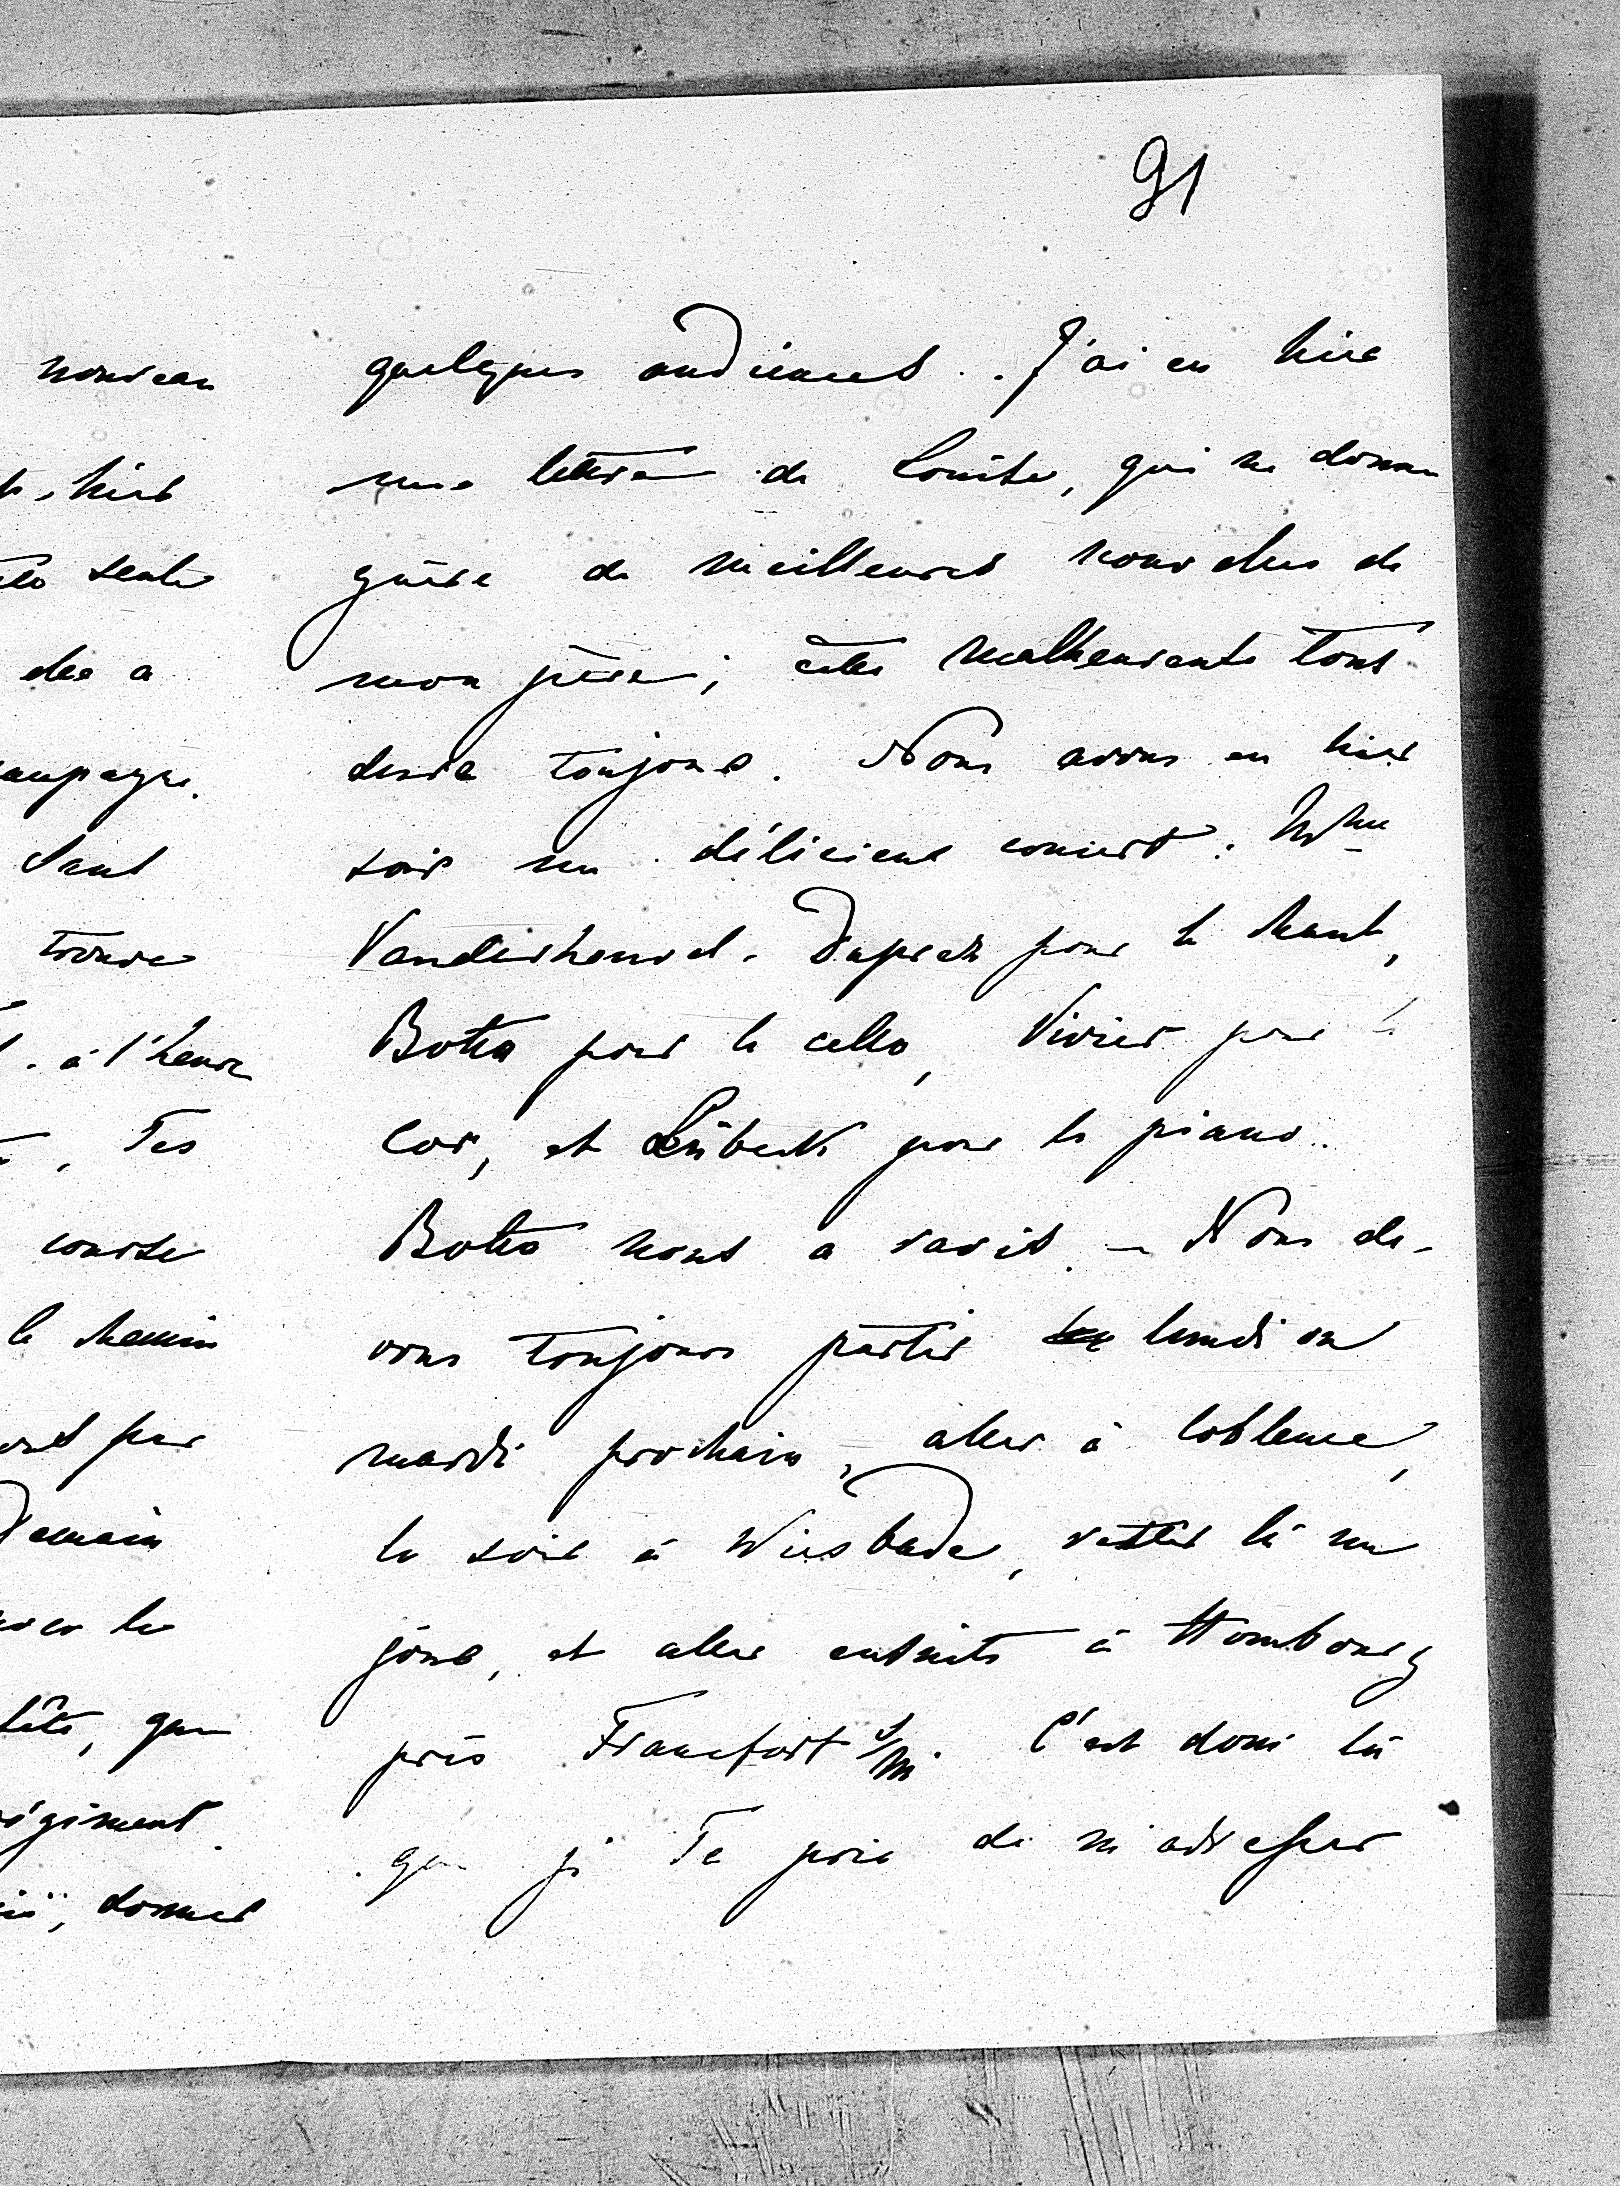 91
nouveau
hier
seule
elle a
campagne.
Sans
trouve
. à l'heure
, Tes
course
le chemin
par
Demain
avec le
tête, que
régiment.
, donner
quelques audiences. J'ai eu hier
une lettre de Louise, qui ne donne
guère de meilleures nouvelles de
mon père ; cette malheureuse toux
dure toujours. Nous avons eu hier
soir un délicieux concert : Mme
Vandenheuvel-Duprez pour le chant,
Botta pour le cello, Vivier pour le
cor, et Lübeck pour le piano.
Botta nous a ravis. — Nous de-
vons toujours partir lundi ou
mardi prochain, aller à Coblence,
le soir à Wiesbade, rester là un
jour, et aller ensuite à Hombourg
près Francfort s/M. C'est donc là
que je Te prie de m'adresser